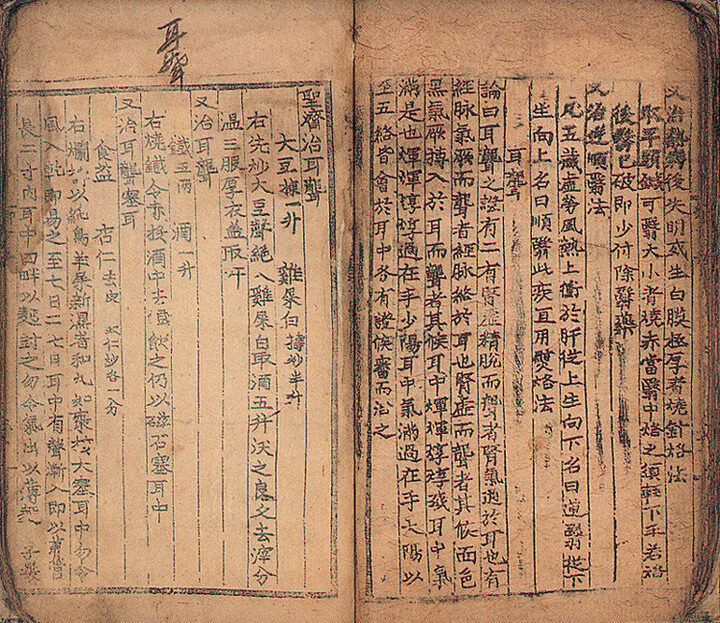 又治熱病後失明或生白膜極厚者燒針烙法
取平頭鍼可醫大小者燒赤當醫中烙之須輕下手若烙
後醫已破即少付除醫藥
又治逆順醫法
凡五藏虛勞風熱上衝於肝從上生向下名曰逆翳從下
生向上名曰順翳此疾宜用熨烙法
耳聾
論曰耳聾之證有二有腎虛精脫而聾者腎氣通於耳也有
經脉氣厥而聾者經脉絡於耳也腎虛而聾者其候面色
黑氣厥搏入於耳而聾者其候耳中煇煇焞焞或耳中氣
滿是也煇煇焞焞過在手少陽耳中氣滿過在手太陽以
至五絡皆會於耳中各有證候審而治之
耳聾
聖濟治耳聾
大豆揀一升 雞屎白擣炒半升
右先炒大豆聲絕入雞屎白取酒五升沃之良久去滓分
溫三服厚衣盖取汗
又治耳聾
鐵五兩 酒一升
右燒鐵令赤投酒中去鐵飲之仍以磁石塞耳中
又治耳聾塞耳
食盐 杏仁去皮 炒各一分
右爛 以純烏羊屎新濕者和丸如棗核大塞耳中勿令
風入乾即易之至七日二七日耳中有聲漸入即以 管
長二寸內耳中四畔以麪封之勿令氣出以薄